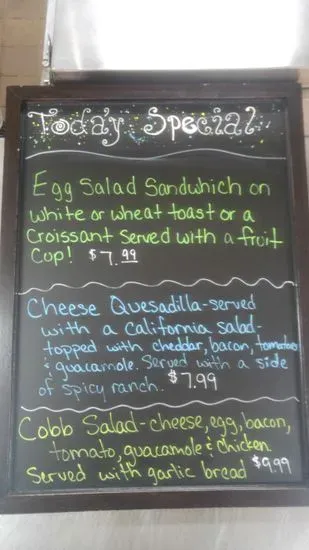 Today Special
Egg Salad Sandwhich on
white or wheat toast or a
Croissant Served with a fruit
Cup! $7.99
Cheese Quesadilla-served
with a california salad-
topped with cheddar, bacon, tomatoes
& guacamole. Served with a side
of spicy ranch. $7.99
Cobb Salad-cheese, egg, bacon,
tomato, guacamole & chicken
Served with garlic bread $9.99